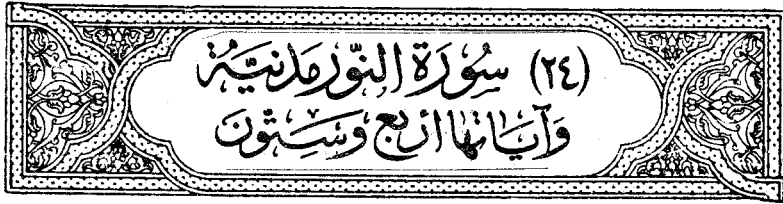 (٢٤) سُورَةُ النُّورِ مَدَنِيَّةٌ
وَآيَاتُهَا أَرْبَعٌ وَسِتُّونَ